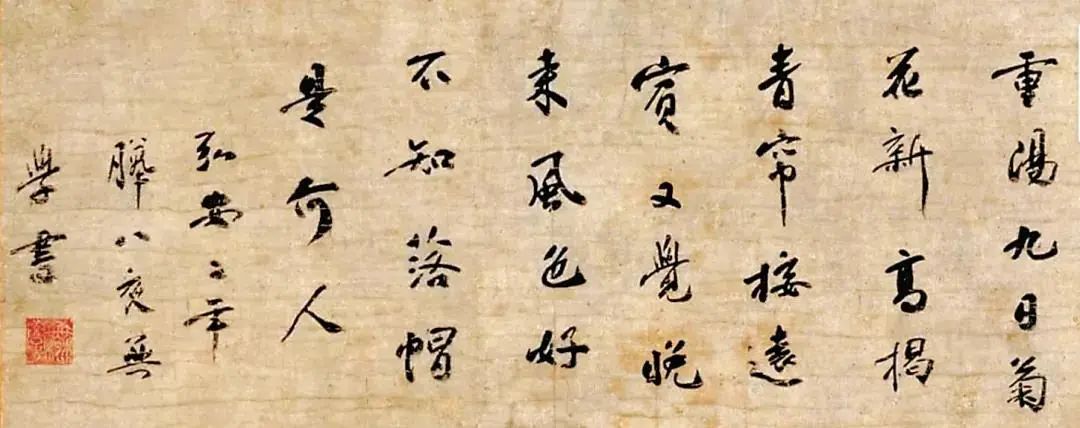 重陽九日菊
花新高揭
青帘接遠
賓又覺晚
来風色好
不知落帽
是何人
弘安二年
臘八夜無
學書